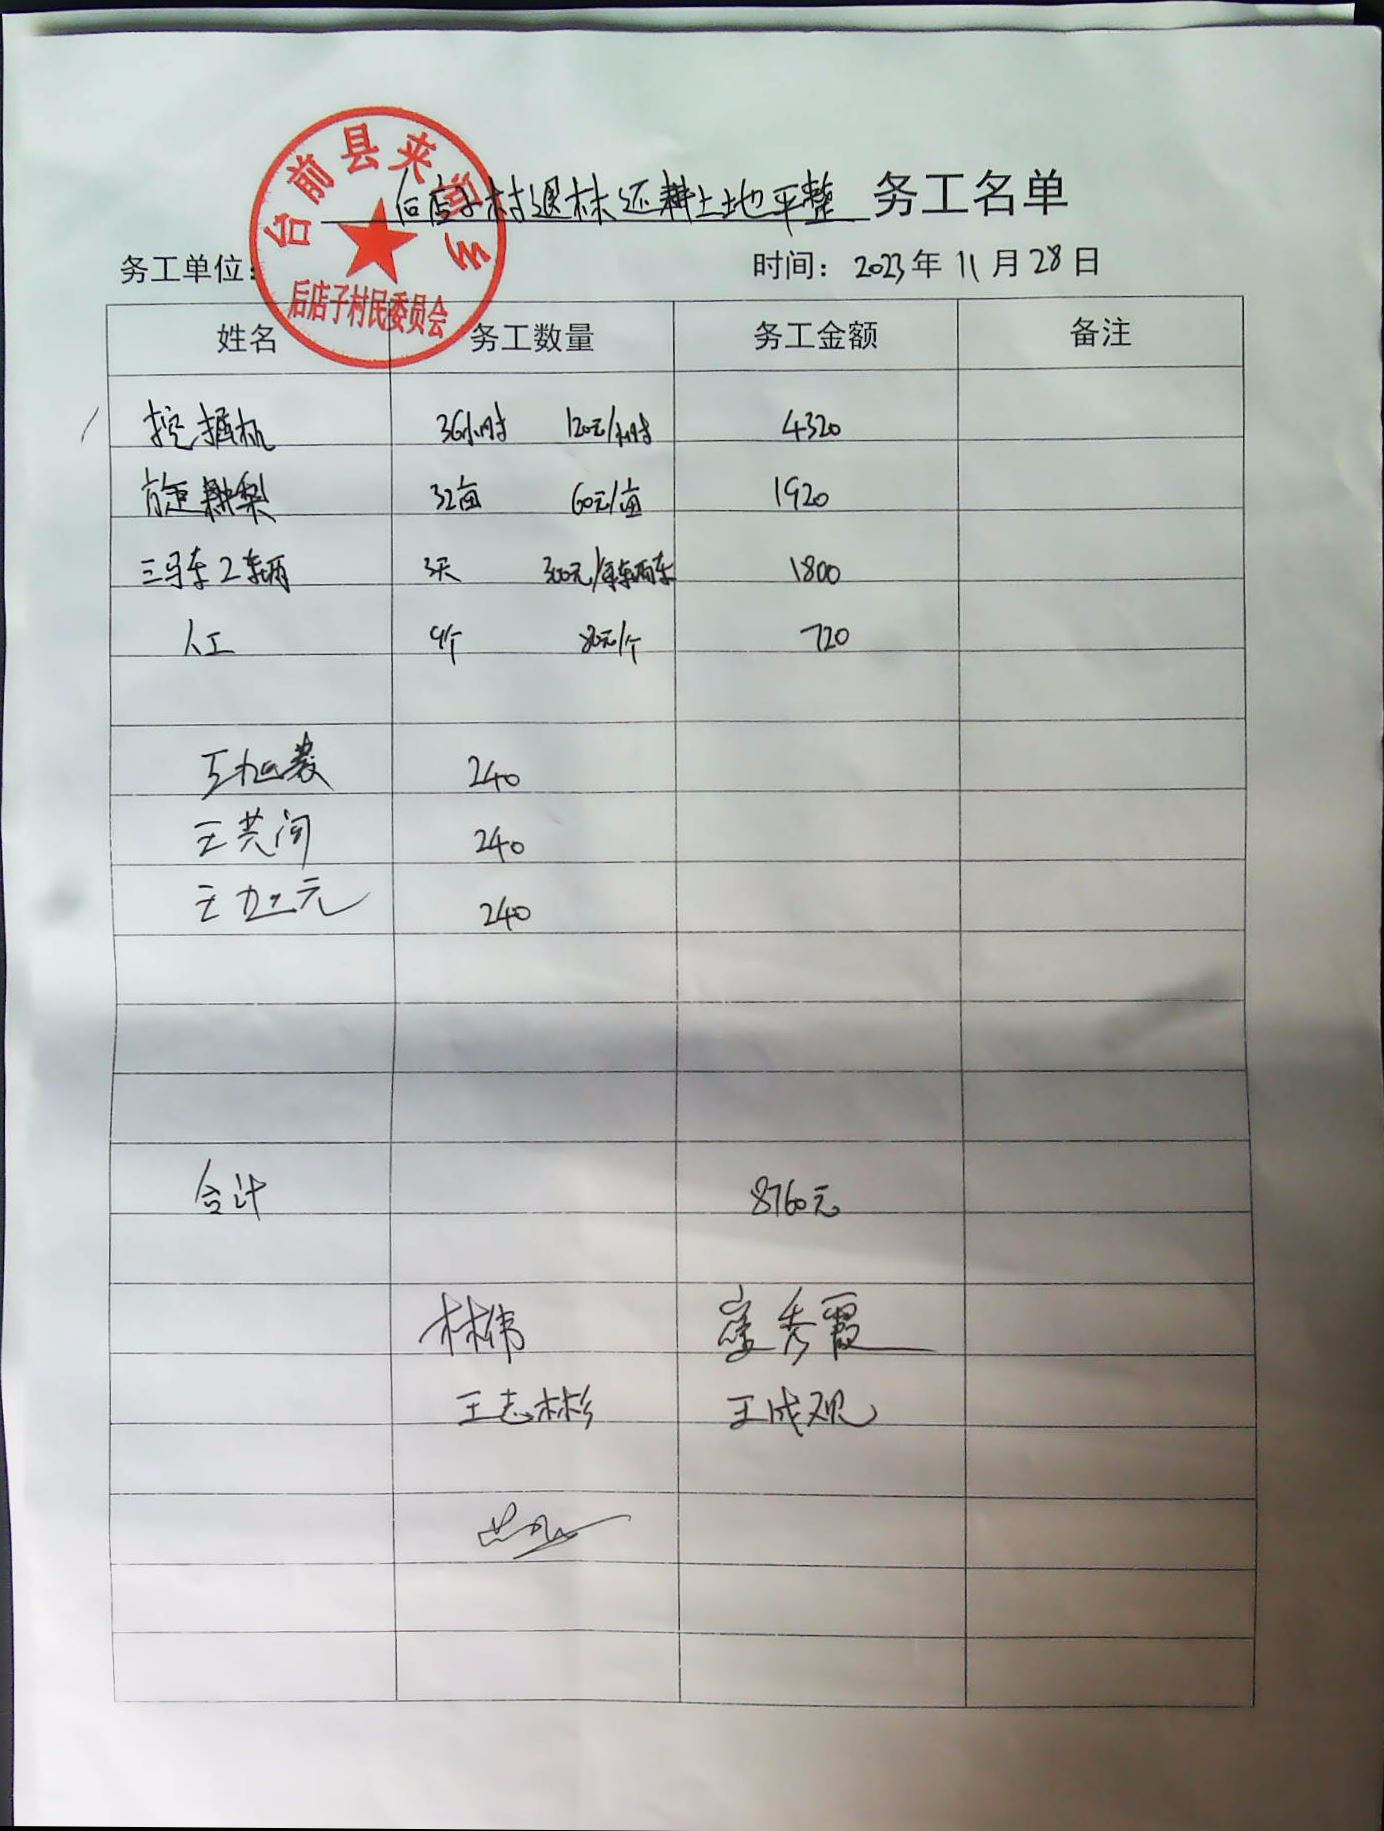 台前县夹河乡
后店子村民委员会
后店子村退林还耕土地平整 务工名单
务工单位： 时间：2023年11月28日
姓名 务工数量 务工金额 备注
挖掘机 36小时 120元/小时 4320
旋耕犁 32亩 60元/亩 1920
三马车2车辆 3天 300元/每车辆车 1800
人工 9个 80元/个 720
240
240
240
合计 8760元
林伟 秀霞
王志彬 王成观